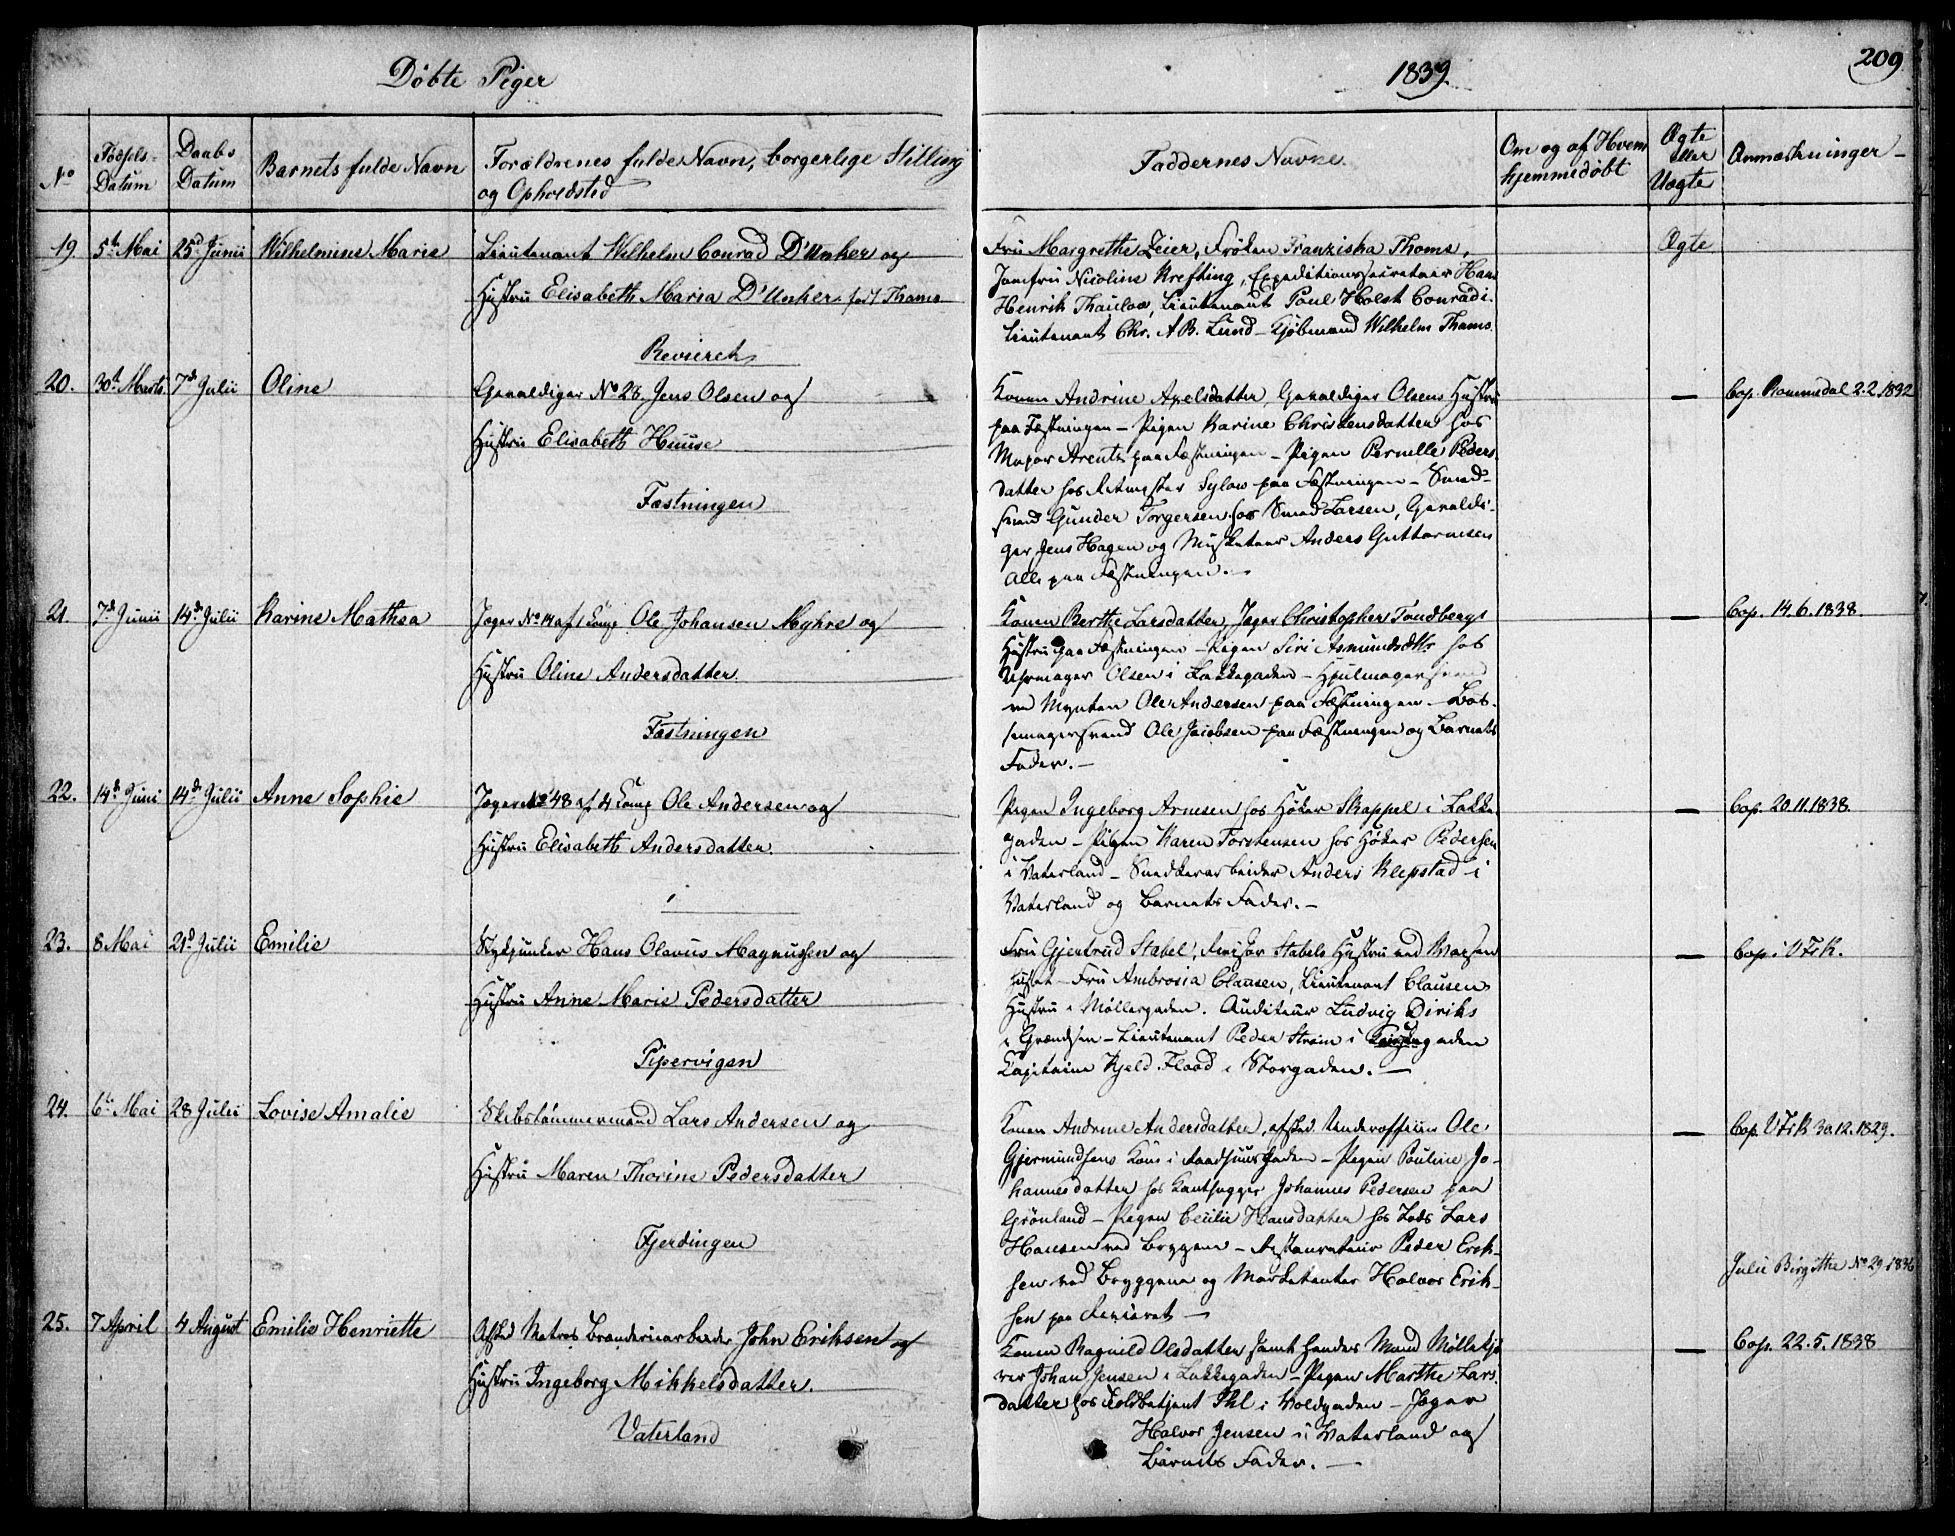 Döbte Piger
1839.
209
No
Fødsels-
Datum
Daabs
Datum
Barnets fulde Navn
Forældrenes fulde Navn, borgerlige Stilling
og Opholdsted
Faddernes Navne.
Om og af Hvem
hjemmedøbt
Ægte
eller
Uægte
Anmærkninger
19. 5te Mai 25d Junii Wilhelmine Marie
Lieutenant Wilhelm Conrad D'Unker og
Hustru Elisabeth Maria D'Unker, fød Thams
Revieret
Fru Margrethe Zeier, Frøken Franziska Thoms,
Jomfru Nicoline Krefting, Expeditionssecretair Hans
Henrik Thaulow, Lieutenant Poul Holst Conradi.
Lieutenant Chr. A B. Lund - Kjøbmand Wilhelm Thams.
Ægte
20. 30te Marts 7de Julii Oline
Gevaldiger No 28 Jens Olsen og
Hustru Elisabeth Huuse
Fæstningen
Konen Andrine Axelsdatter, Gevaldiger Olsens Hustru
paa Fæstningen - Pigen Karine Christensdatter hos
Major Arentz paa Fæstningen - Pigen Pernille Peders
datter hos Ritmester Sylow paa Fæstningen - Smed-
svend Gunder Torgersen hos Smed Larsen, Gevaldi-
ger Jens Hagen og Musketeer Anders Guttormsen
alle paa Fæstningen. -
—
Cop. Romsdal 2.2.1832
21. 7de Junii 14de Julii Karine Mathea
Jæger No 14 af 1 Comp Ole Johansen Myhre og
Hustru Oline Andersdatter.
Fæstningen
Konen Berthe Larsdatter, Jæger Christopher Tandbergs
Hustru paa Fæstningen - Pigen Siri Asmundsdttr hos
Uhrmager Olsen i Lakkegaden - Hjulmagersvend
ved Mynten Ole Andersen paa Fæstningen. - Bøs-
semagersvend Ole Jacobsen paa Fæstningen og Barnets
Fader. -
—
Cop. 14.6.1838.
22. 14de Juni 14de Julii Anne Sophie
Jæger No 48 af 4 Comp Ole Andersen og
Hustru Elisabeth Andersdatter.
Pigen Ingeborg Arnesen hos Høker Skappel i Lakke
gaden - Pigen Karen Torstensen hos Høker Pedersen
i Vaterland - Snedkerarbeider Anders Klepstad i
Vaterland og Barnets Fader. -
—
Cop. 20.11.1838.
23. 8 Mai 21d Julii Emilie
Stykjunker Hans Olavus Magnussen og
Hustru Anne Marie Pedersdatter
Pipervigen
Fru Gjertrud Stabel, Revisor Stabels Hustru ved Waisen
huset - Fru Ambrosia Clausen, Lieutenant Clausens
Hustru i Møllergaden. Auditeur Ludvig Diriks
i Grændsen - Lieutenant Peder Strøm i gaden
Kapitaine Kjeld Flood i Storgaden. -
—
Cop. i VFrK.
24. 6te Mai 28 Julii Lovise Amalie
Skibstømmermand Lars Andersen og
Hustru Maren Thorine Pedersdatter
Fjerdingen
Konen Andrine Andersdatter, afsked Underofficier Ole
Gjermundsens Kone i Raadhuusgaden - Pigen Pauline Jo-
hannesdatter hos Kanthugger Johannes Pedersen paa
Grönland - Pigen Cecilie Hansdatter hos Lods Lars
Hansen ved Bryggen - Restaurateur Peder Erik-
sen ved Bryggene og Marketenter Halvor Erik-
sen paa Revieret -
—
Cop. VFrK 30.12.1829.
Julie Birgithe No 29 1836
25. 7 April 4 August Emilie Henriette
Afsked Matros Brænderiearbeider John Eriksen og
Hustru Ingeborg Mikkelsdatter.
Vaterland
Konen Ragnild Olsdatter samt hendes Mand Møllekjø
rer Johan Jensen i Lakkegaden - Pigen Marthe Lars.
datter hos Toldbetjent Ihl i Voldgaden - Jæger
Halvor Jensen i Vaterland og
Barnets Fader. -
—
Cop. 22.5.1838